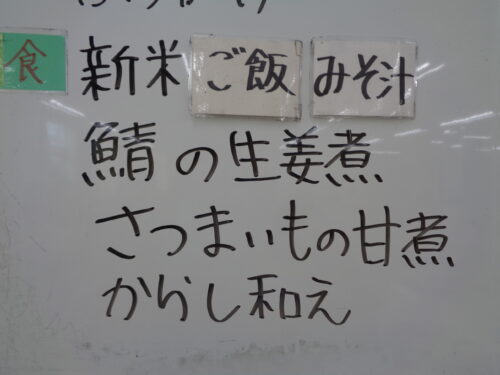 食 新米 ご飯 みそ汁
鯖の生姜煮
さつまいもの甘煮
からし和え